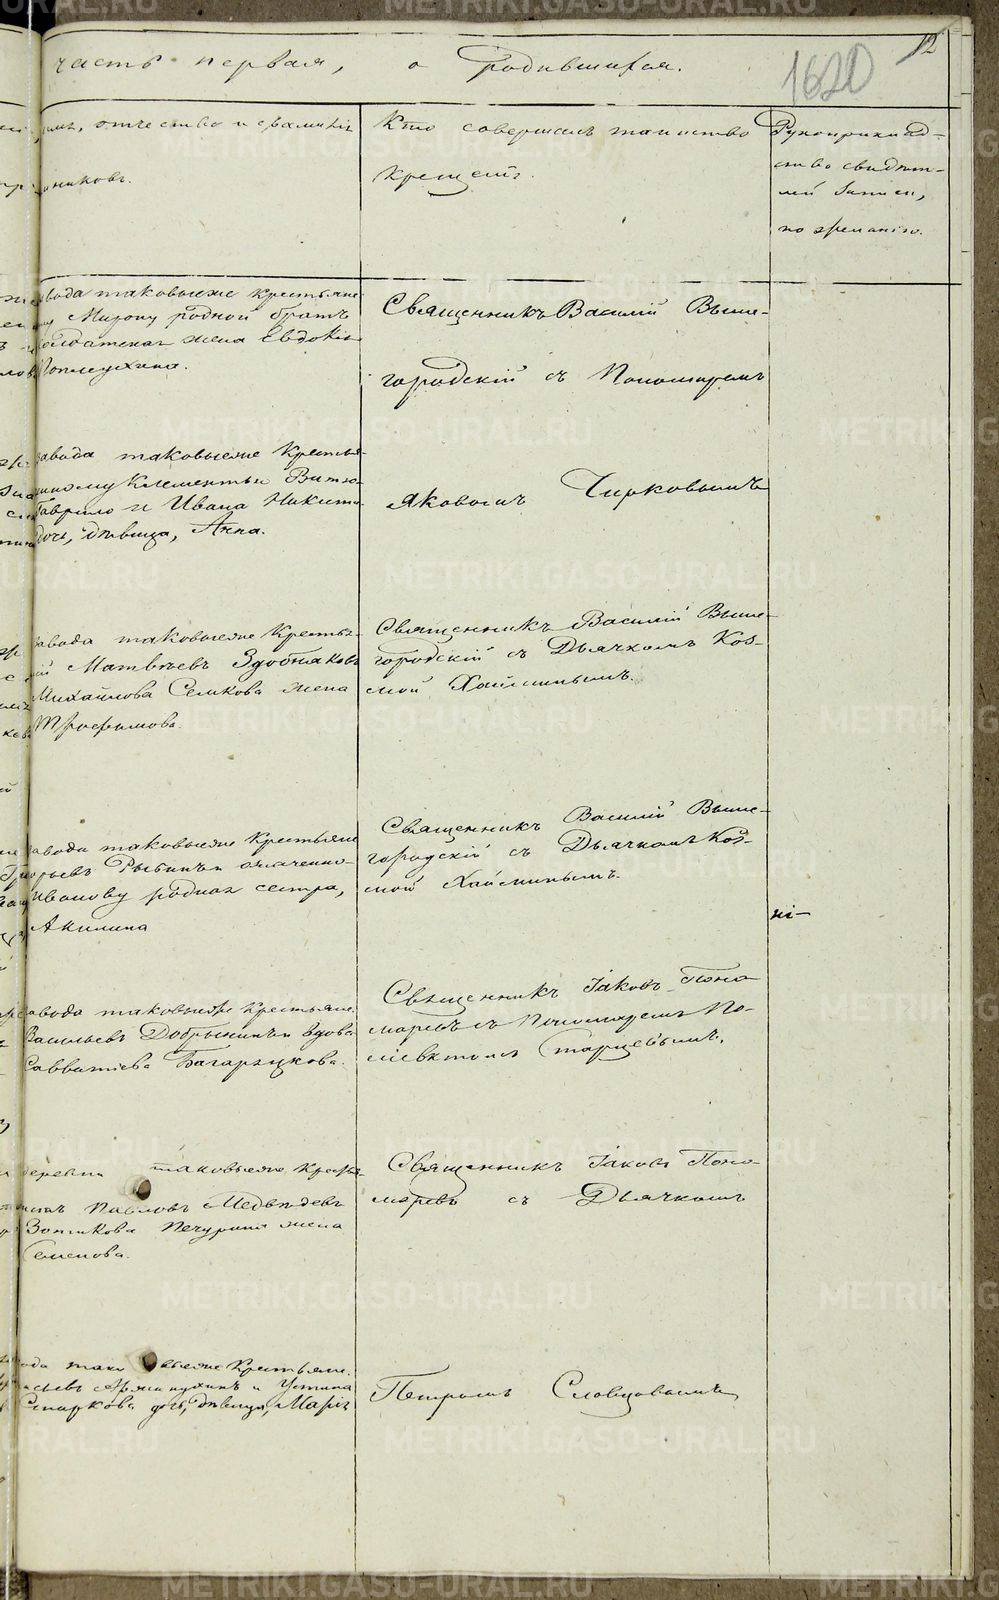 12
1620
часть первая, о родившихся.
имя, отчество и фамилія
Кто совершалъ таинство
крещенія.
Рукоприклад-
ство свидѣте-
лей записи,
по желанію.
завода таковыеже крестьяне
Мирону родной братъ
Солдатская жена Евдокія
Священникъ Василій Выше-
городскій съ Пономаремъ
завода таковыеже Крестья-
Клементьи
Гаврило и Ивана Никити
дочь, дѣвица, Анна.
Яковомъ Чирковымъ
завода таковыеже Кресть-
Матвѣевъ Здобняковъ
Михайлова Семкова жена
Трофимова.
Священникъ Василій Выше-
городскій съ Дьячкомъ Коз-
мой Хайминымъ.
завода таковыеже Крестьяне
Григорьевъ Рыбинъ означенно-
Иванову родная сестра,
Акилина
Священникъ Василій Выше-
городскій съ Дьячкомъ Коз-
мой Хайминымъ.
завода таковыеже Крестьяне
Васильевъ Добрынинъ и вдова
Савватіева Багарядкова.
Священникъ Іаковъ Поно-
маревъ съ Пономаремъ По-
ліевктомъ Старцевымъ.
деревни таковыеже Кресть-
Павловъ Медвѣдевъ
Зотикова Печурина жена
Семенова.
Священникъ Іаковъ Поно-
маревъ съ Дьячкомъ
завода таковыеже Крестьяне
и Устина
дочь, дѣвица, Марія
Петромъ Словцовымъ
METRIKI.GASO-URAL.RU